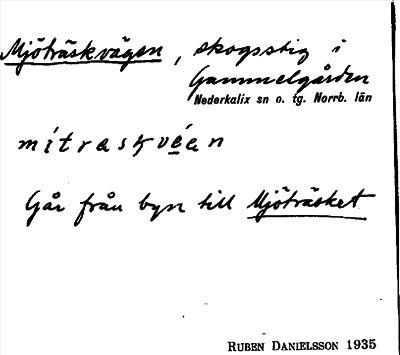 Mjöträskvägen, skogsstig i
Gammelgården
Nederkalix sn o. tg. Norrb. län
mítraskvéan
Går från byn till Mjöträsket
RUBEN DANIELSSON 1935